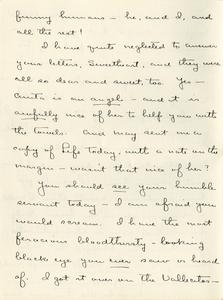 funny humans – he, and I, and
all the rest!
I have quite neglected to answer
your letters, Sweetheart, and they were
all so dear and sweet, too. Yes –
Anita is an angel – and it is
awfully nice of her to help you with
the towels. And May sent me a
copy of Life today, with a note on the
margin – wasn't that nice of her?
You should see your humble
servant today – I am afraid you
would scream. I have the most
ferocious bloodthirsty-looking
black eye you ever saw or heard
of. I got it over on the Vallecitos –